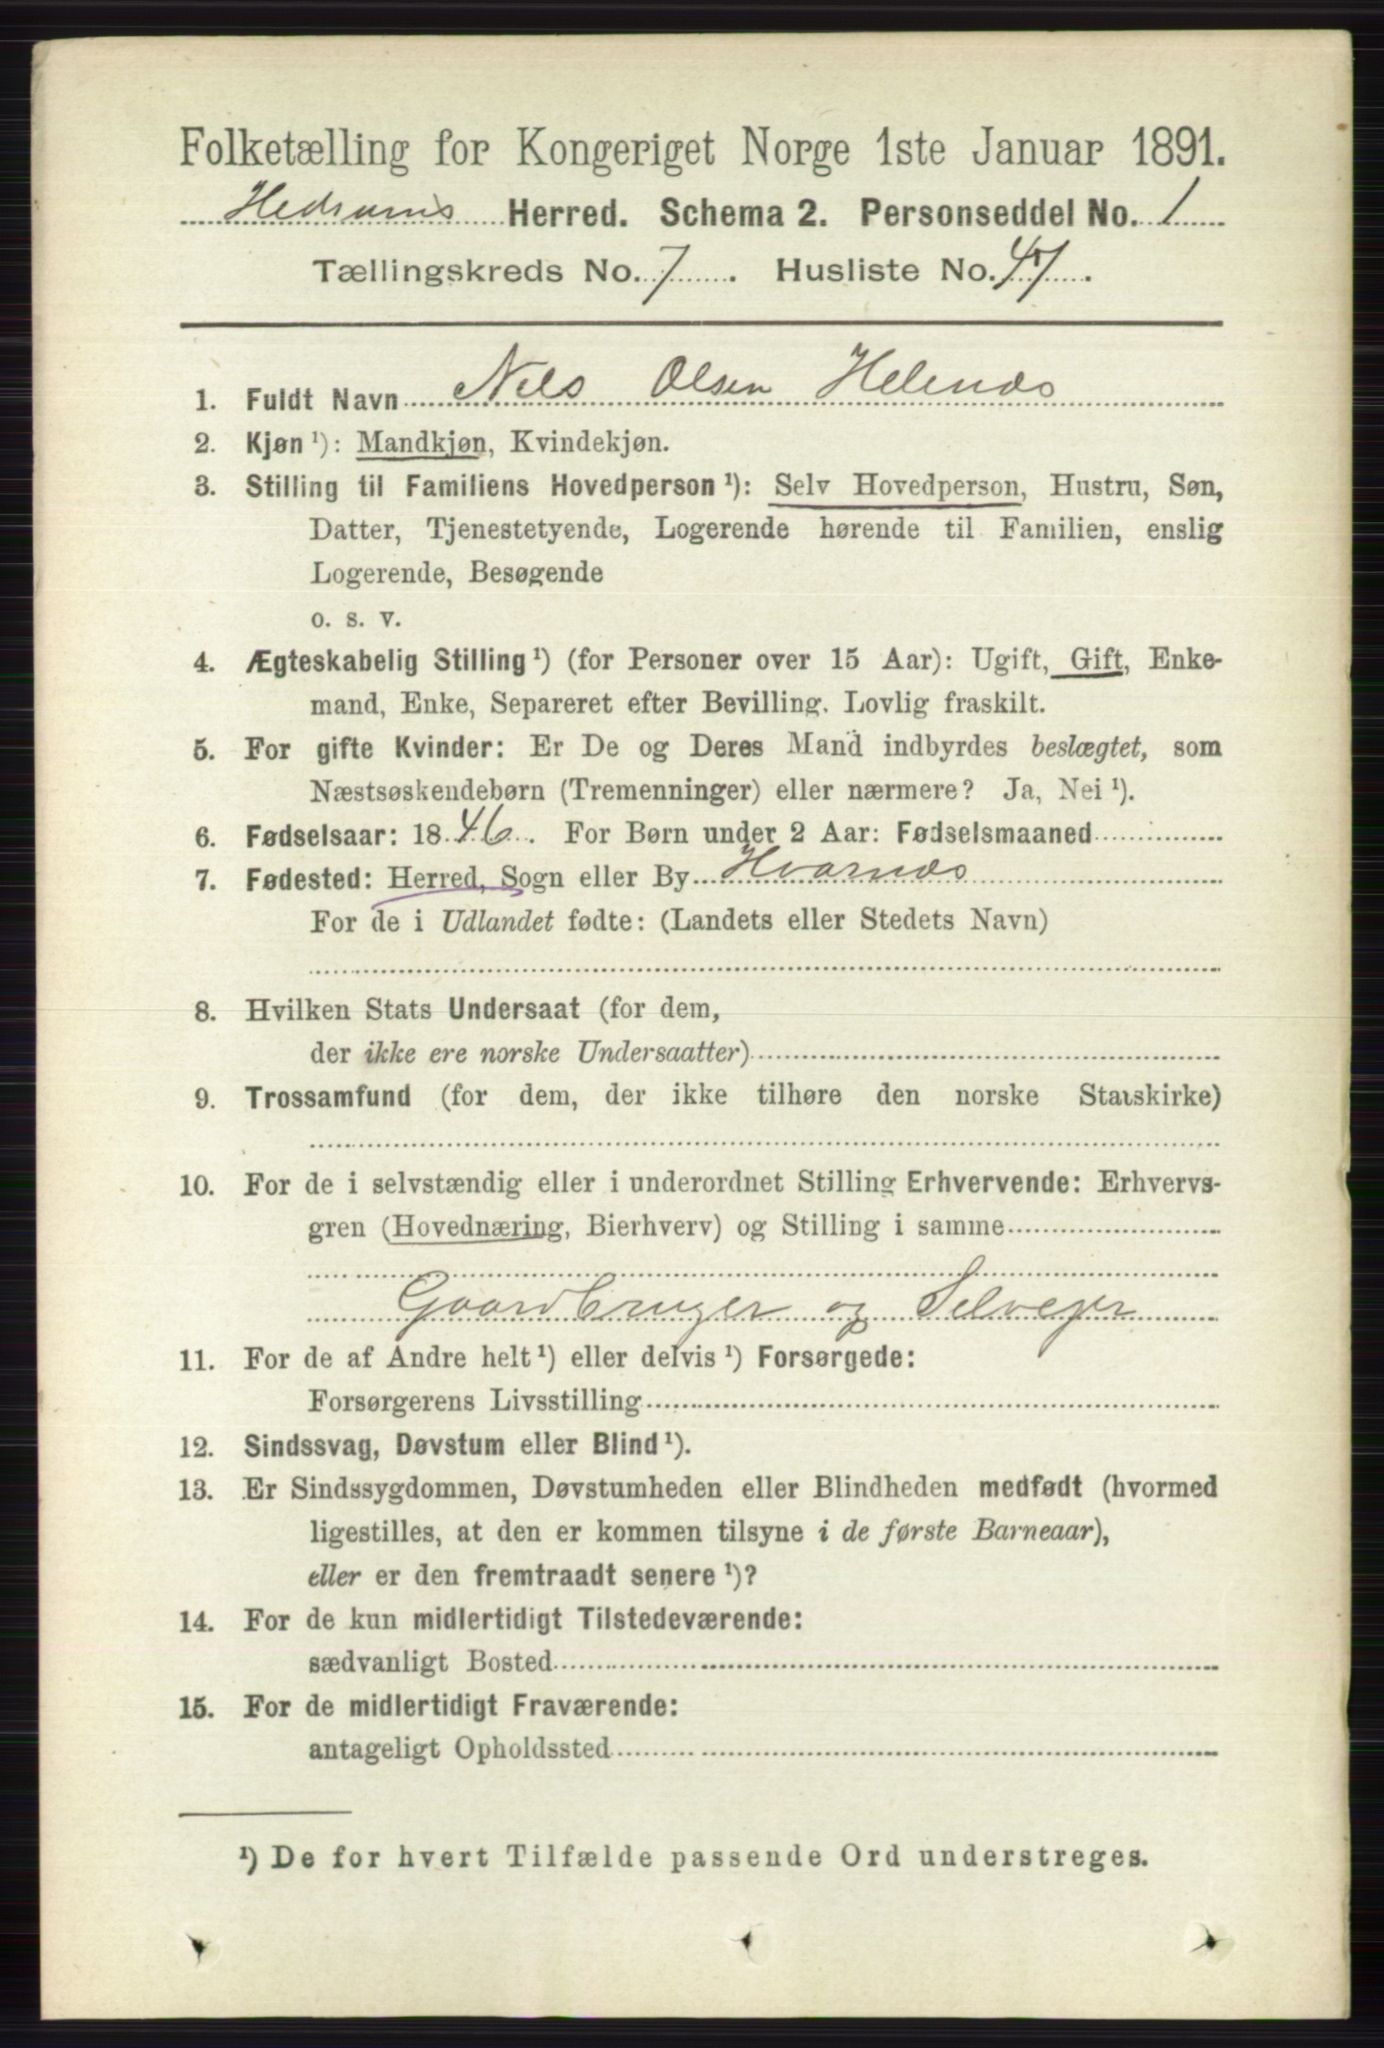 Folketælling for Kongeriget Norge 1ste Januar 1891.
Hedrums Herred. Schema 2. Personseddel No. 1
Tællingskreds No. 7. Husliste No. 47.
1. Fuldt Navn Nils Olsen Helenæs
2. Kjøn ¹): Mandkjøn, Kvindekjøn.
3. Stilling til Familiens Hovedperson ¹): Selv Hovedperson, Hustru, Søn,
Datter, Tjenestetyende, Logerende hørende til Familien, enslig
Logerende, Besøgende
o. s. v.
4. Ægteskabelig Stilling ¹) (for Personer over 15 Aar): Ugift, Gift, Enke-
mand, Enke, Separeret efter Bevilling. Lovlig fraskilt.
5. For gifte Kvinder: Er De og Deres Mand indbyrdes beslægtet, som
Næstsøskendebørn (Tremenninger) eller nærmere? Ja, Nei ¹).
6. Fødselsaar: 1846. For Børn under 2 Aar: Fødselsmaaned
7. Fødested: Herred, Sogn eller By Hvarnæs
For de i Udlandet fødte: (Landets eller Stedets Navn)
8. Hvilken Stats Undersaat (for dem,
der ikke ere norske Undersaatter)
9. Trossamfund (for dem, der ikke tilhøre den norske Statskirke)
10. For de i selvstændig eller i underordnet Stilling Erhvervende: Erhvervs-
gren (Hovednæring, Bierhverv) og Stilling i samme
Gaardbruger og Selveier
11. For de af Andre helt ¹) eller delvis ¹) Forsørgede:
Forsørgerens Livsstilling
12. Sindssvag, Døvstum eller Blind ¹).
13. Er Sindssygdommen, Døvstumheden eller Blindheden medfødt (hvormed
ligestilles, at den er kommen tilsyne i de første Barneaar),
eller er den fremtraadt senere ¹)?
14. For de kun midlertidigt Tilstedeværende:
sædvanligt Bosted
15. For de midlertidigt Fraværende:
antageligt Opholdssted
¹) De for hvert Tilfælde passende Ord understreges.